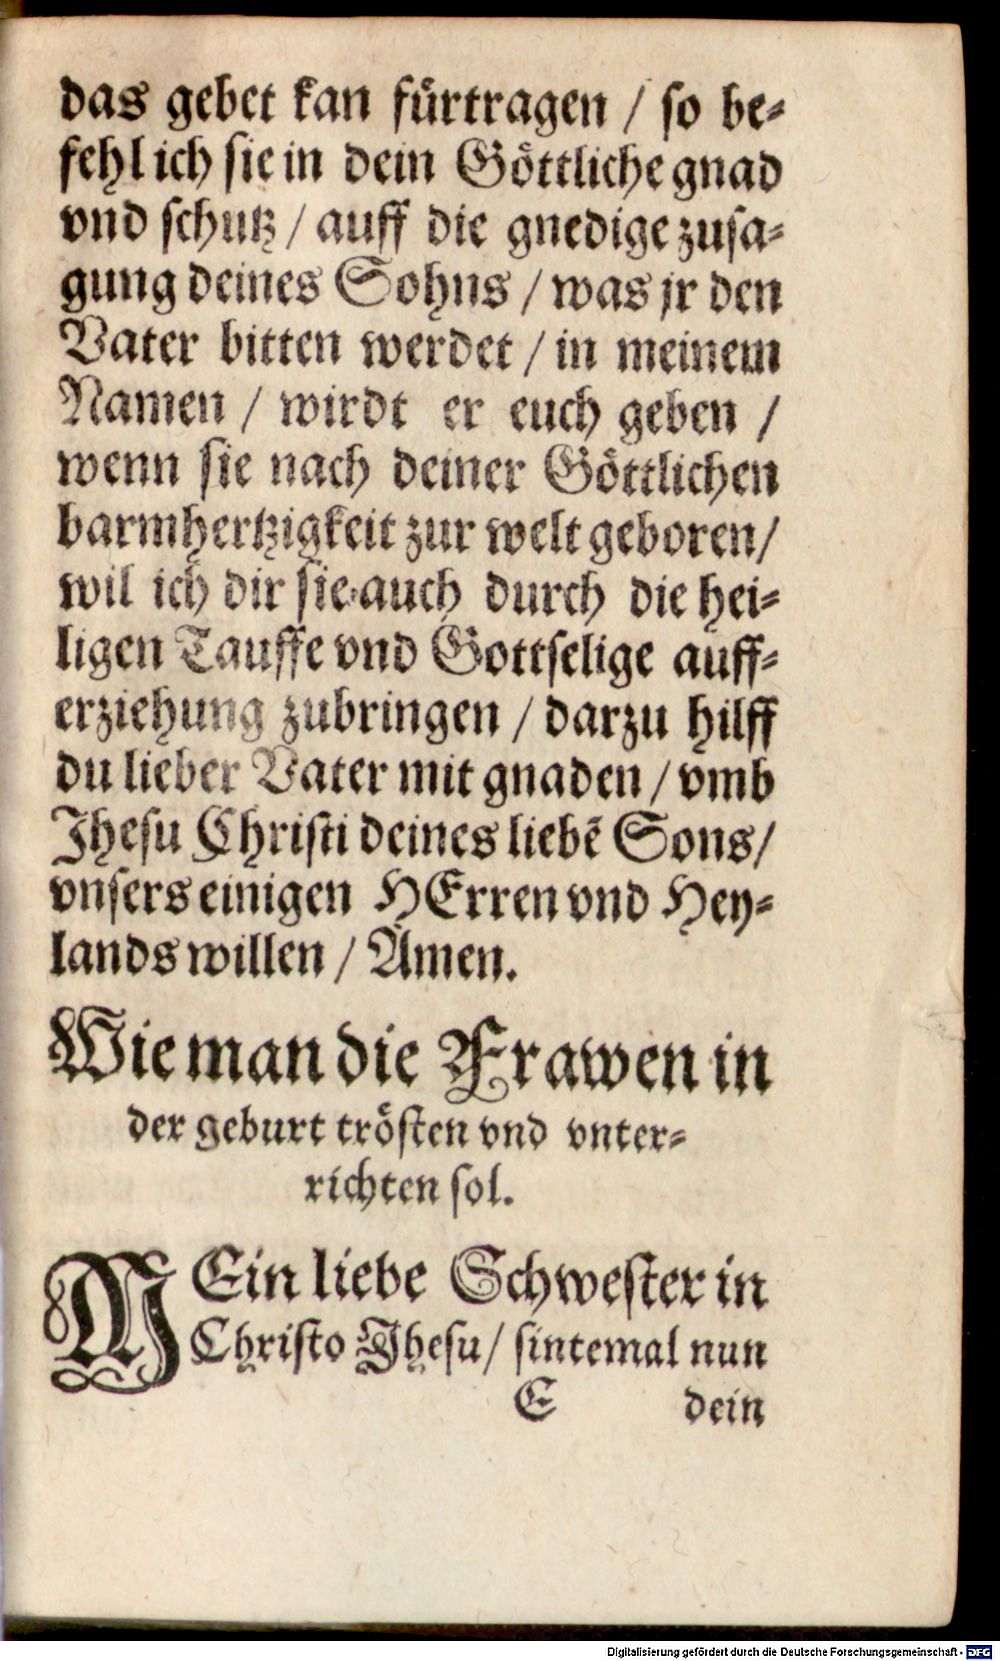 das gebet kan fürtragen / so be-
fehl ich sie in dein Göttliche gnad
vnd schutz / auff die gnedige zusa-
gung deines Sohns / was jr den
Vater bitten werdet / in meinem
Namen / wirdt er euch geben /
wenn sie nach deiner Göttlichen
barmhertzigkeit zur welt geboren/
wil ich dir sie auch durch die hei-
ligen Tauffe vnd Gottselige auff-
erziehung zubringen / darzu hilff
du lieber Vater mit gnaden / vmb
Jhesu Christi deines liebẽ Sons/
vnsers einigen HErren vnd Hey-
lands willen / Amen.
Wie man die Frawen in
der geburt trösten vnd vnter-
richten sol.
MEin liebe Schwester in
Christo Jhesu/ sintemal nun
E dein
Digitalisierung gefördert durch die Deutsche Forschungsgemeinschaft - DFG